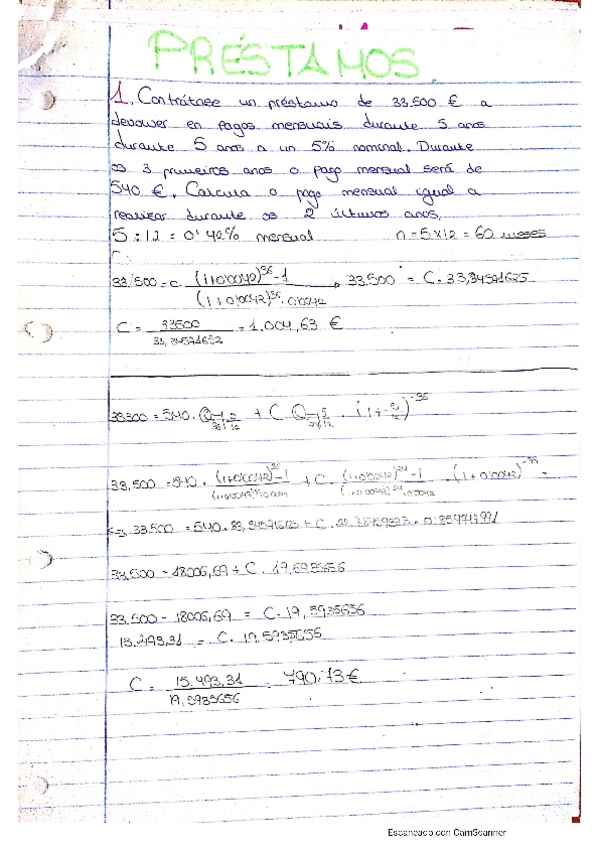 PRÉSTAMOS.
1. Contrátase un préstamo de 33.500 € a
devolver en pagos mensuais durante 5 anos
durante 5 anos a un 5% nominal. Durante
os 3 primeiros anos o pago mensual será de
540 €. Calcula o pago mensual igual a
realizar durante os 2 últimos anos.
5 : 12 = 0'42% mensual n = 5x12 = 60 meses
33.500 = C. (1+0'0042)^36 - 1 / (1+0'0042)^36 . 0'0042 , 33.500 = C. 33,34571625
C = 33500 / 33,34571632 = 1.004,63 €
33.500 = 540 . + C .
33.500 = 540 . (1+0'0042)^36 - 1 / + C . (1+0'0042)^24 - 1 / (1+0'0042)^24 . 0'0042 . (1+0'0042) =
33.500 = 540 . + C .
33.500 = 18006,69 + C . 19,5935656
33.500 - 18006,69 = C . 19,5935656
15.493,31 = C . 19,5935656
C = 15.493,31 / 19,5935656 = 790,73 €
Escaneado con CamScanner